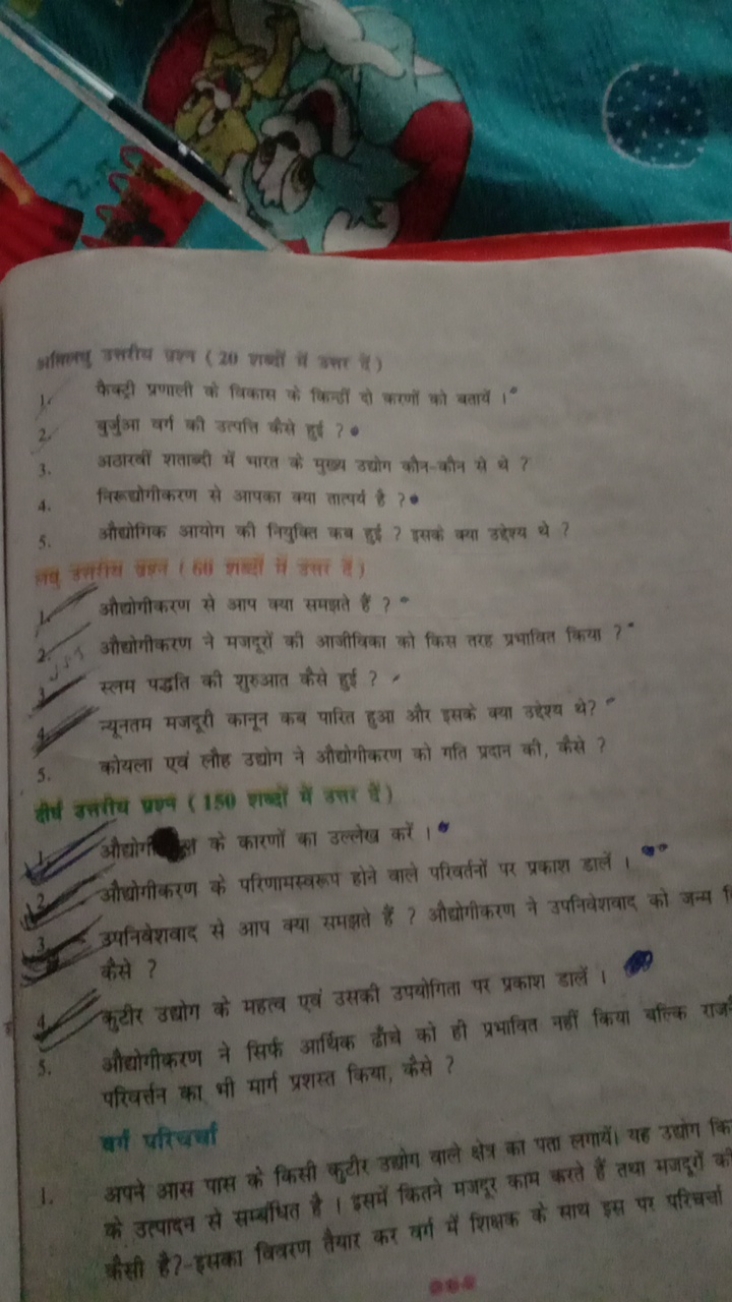 अतिलघु उत्तरीय प्रश्न ( 20 शब्दों में उत्तर दें )
1. फैक्ट्री प्रणाली के विकास के किन्हीं दो करणों को बतायें ।
2. बुर्जुआ वर्ग की उत्पत्ति कैसे हुई ?
3. अठारवीं शताब्दी में भारत के मुख्य उद्योग कौन-कौन से थे ?
4. निरूद्योगीकरण से आपका क्या तात्पर्य है ?
5. औद्योगिक आयोग की नियुक्ति कब हुई ? इसके क्या उद्देश्य थे ?
लघु उत्तरीय प्रश्न ( 60 शब्दों में उत्तर दें )
1. औद्योगीकरण से आप क्या समझते हैं ?
2. औद्योगीकरण ने मजदूरों की आजीविका को किस तरह प्रभावित किया ?
3. स्लम पद्धति की शुरुआत कैसे हुई ?
4. न्यूनतम मजदूरी कानून कब पारित हुआ और इसके क्या उद्देश्य थे?
5. कोयला एवं लौह उद्योग ने औद्योगीकरण को गति प्रदान की, कैसे ?
दीर्घ उत्तरीय प्रश्न ( 150 शब्दों में उत्तर दें )
1. के कारणों का उल्लेख करें ।
2. औद्योगीकरण के परिणामस्वरूप होने वाले परिवर्तनों पर प्रकाश डालें ।
3. उपनिवेशवाद से आप क्या समझते हैं ? औद्योगीकरण ने उपनिवेशवाद को जन्म
कैसे ?
4. कुटीर उद्योग के महत्व एवं उसकी उपयोगिता पर प्रकाश डालें ।
5. औद्योगीकरण ने सिर्फ आर्थिक ढाँचे को ही प्रभावित नहीं किया बल्कि
परिवर्त्तन का भी मार्ग प्रशस्त किया, कैसे ?
वर्ग परिचर्चा
1. अपने आस पास के किसी कुटीर उद्योग वाले क्षेत्र का पता लगायें। यह उद्योग
के उत्पादन से सम्बंधित है । इसमें कितने मजदूर काम करते हैं तथा मजदूरों की
कैसी है?-इसका विवरण तैयार कर वर्ग में शिक्षक के साथ इस पर परिचर्चा